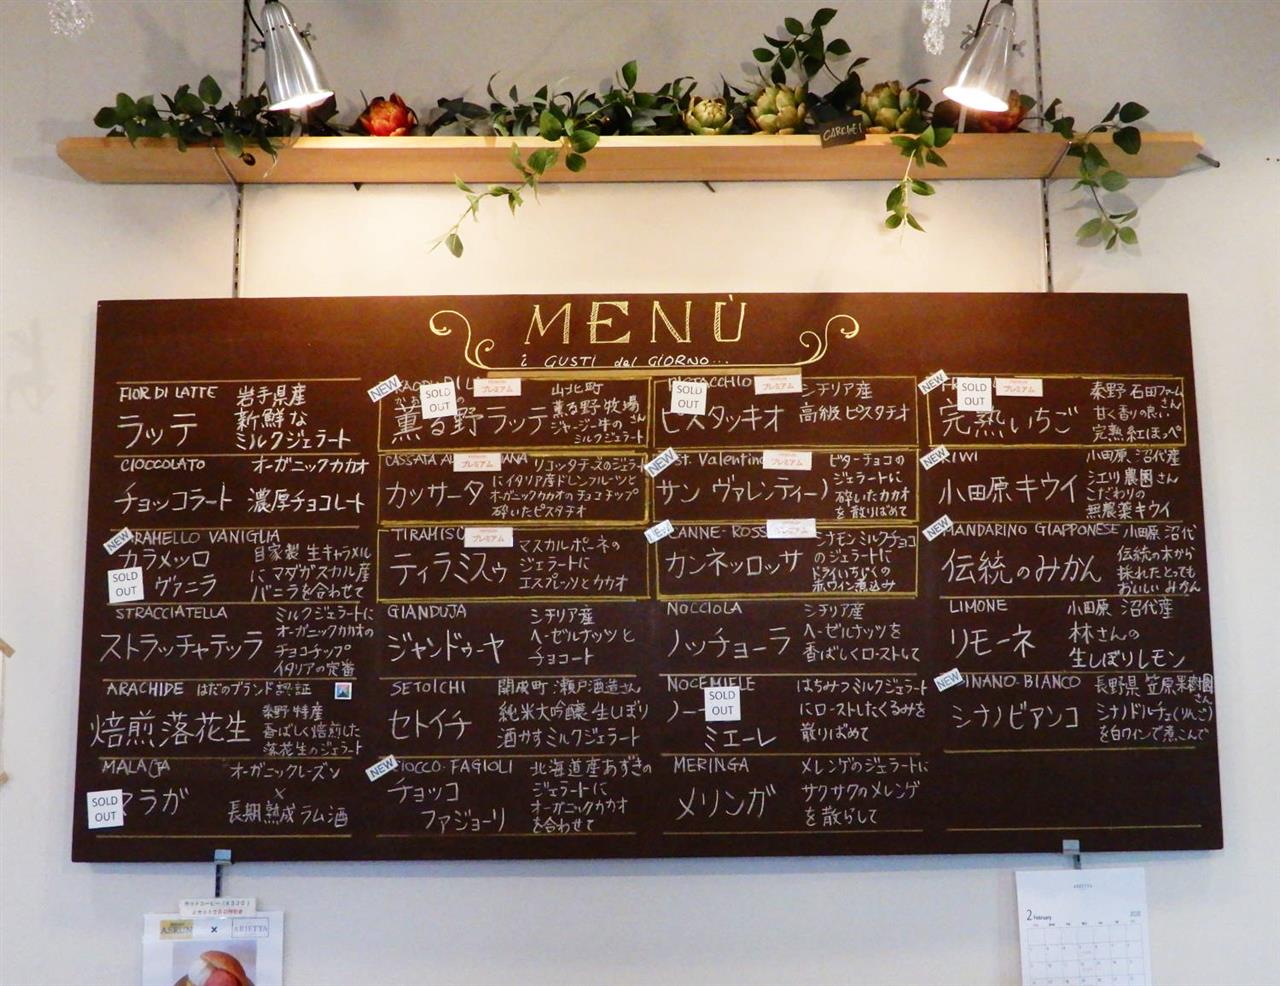 CARCIOFI
MENÙ
i GUSTI del GIORNO...
FIOR DI LATTE
ラッテ
岩手県産
新鮮な
ミルクジェラート
CIOCCOLATO
チョッコラート
オーガニックカカオ
濃厚チョコレート
NEW
VANIGLIA
カラメッロ
ヴァニラ
SOLD
OUT
自家製 生キャラメル
に マダガスカル産
バニラを合わせて
STRACCIATELLA
ストラッチャテッラ
ミルクジェラートに
オーガニックカカオの
チョコチップ
イタリアの定番
ARACHIDE
はだのブランド認証
焙煎落花生
秦野特産
香ばしく焙煎した
落花生のジェラート
MALAGA
マラガ
SOLD
OUT
オーガニックレーズン
×
長期熟成ラム酒
NEW
SOLD
OUT
プレミアム
薫る野ラッテ
山北町
薫る野牧場
さん
ジャージー牛の
ミルクジェラート
CASSATA
プレミアム
カッサータ
リコッタチーズのジェラート
にイタリア産ドレンフルーツと
オーガニックカカオのチョコチップ
砕いたピスタチオ
TIRAMISU
プレミアム
ティラミスゥ
マスカルポーネの
ジェラートに
エスプレーソとカカオ
GIANDUJA
ジャンドゥーヤ
シチリア産
ヘーゼルナッツと
チョコート
SETOICHI
セトイチ
開成町 瀬戸酒造さん
純米大吟醸生しぼり
酒かすミルクジェラート
NEW
FAGIOLI
チョッコ
ファジョーリ
北海道産あずきの
ジェラートに
オーガニックカカオ
を合わせて
PISTACCHIO
SOLD
OUT
プレミアム
ピスタッキオ
シチリア産
高級ピスタチオ
NEW
St. Valentino
プレミアム
サン ヴァレンティーノ
ビターチョコの
ジェラートに
砕いたカカオ
を散りばめて
NEW
CANNE-ROSSA
プレミアム
カンネッロッサ
シナモンミルクチョコ
のジェラートに
ドライいちじくの
赤ワイン煮込み
NOCCIOLA
ノッチョーラ
シチリア産
ヘーゼルナッツを
香ばしくローストして
NOCEMIELE
SOLD
OUT
ノーチ
ミエーレ
はちみつミルクジェラート
にローストしたくるみを
散りばめて
MERINGA
メリンガ
メレンゲのジェラートに
サクサクのメレンゲ
を散らして
NEW
SOLD
OUT
プレミアム
完熟いちご
秦野 石田ファーム
さん
甘く香りの良い
完熟紅ほっぺ
NEW
KIWI
小田原キウイ
小田原 沼代産
江川農園さん
こだわりの
無農薬キウイ
NEW
MANDARINO GIAPPONESE
伝統のみかん
小田原 沼代
伝統の木から
採れたとっても
おいしいみかん
LIMONE
リモーネ
小田原 沼代産
林さんの
生しぼりレモン
NEW
SINANO-BIANCO
シナノビアンコ
長野県 笠原果樹園
さん
シナノドルチェ(りんご)
を白ワインで煮こんで
ホットコーヒー(¥320)
×
ARIETTA
ARIETTA
2 February